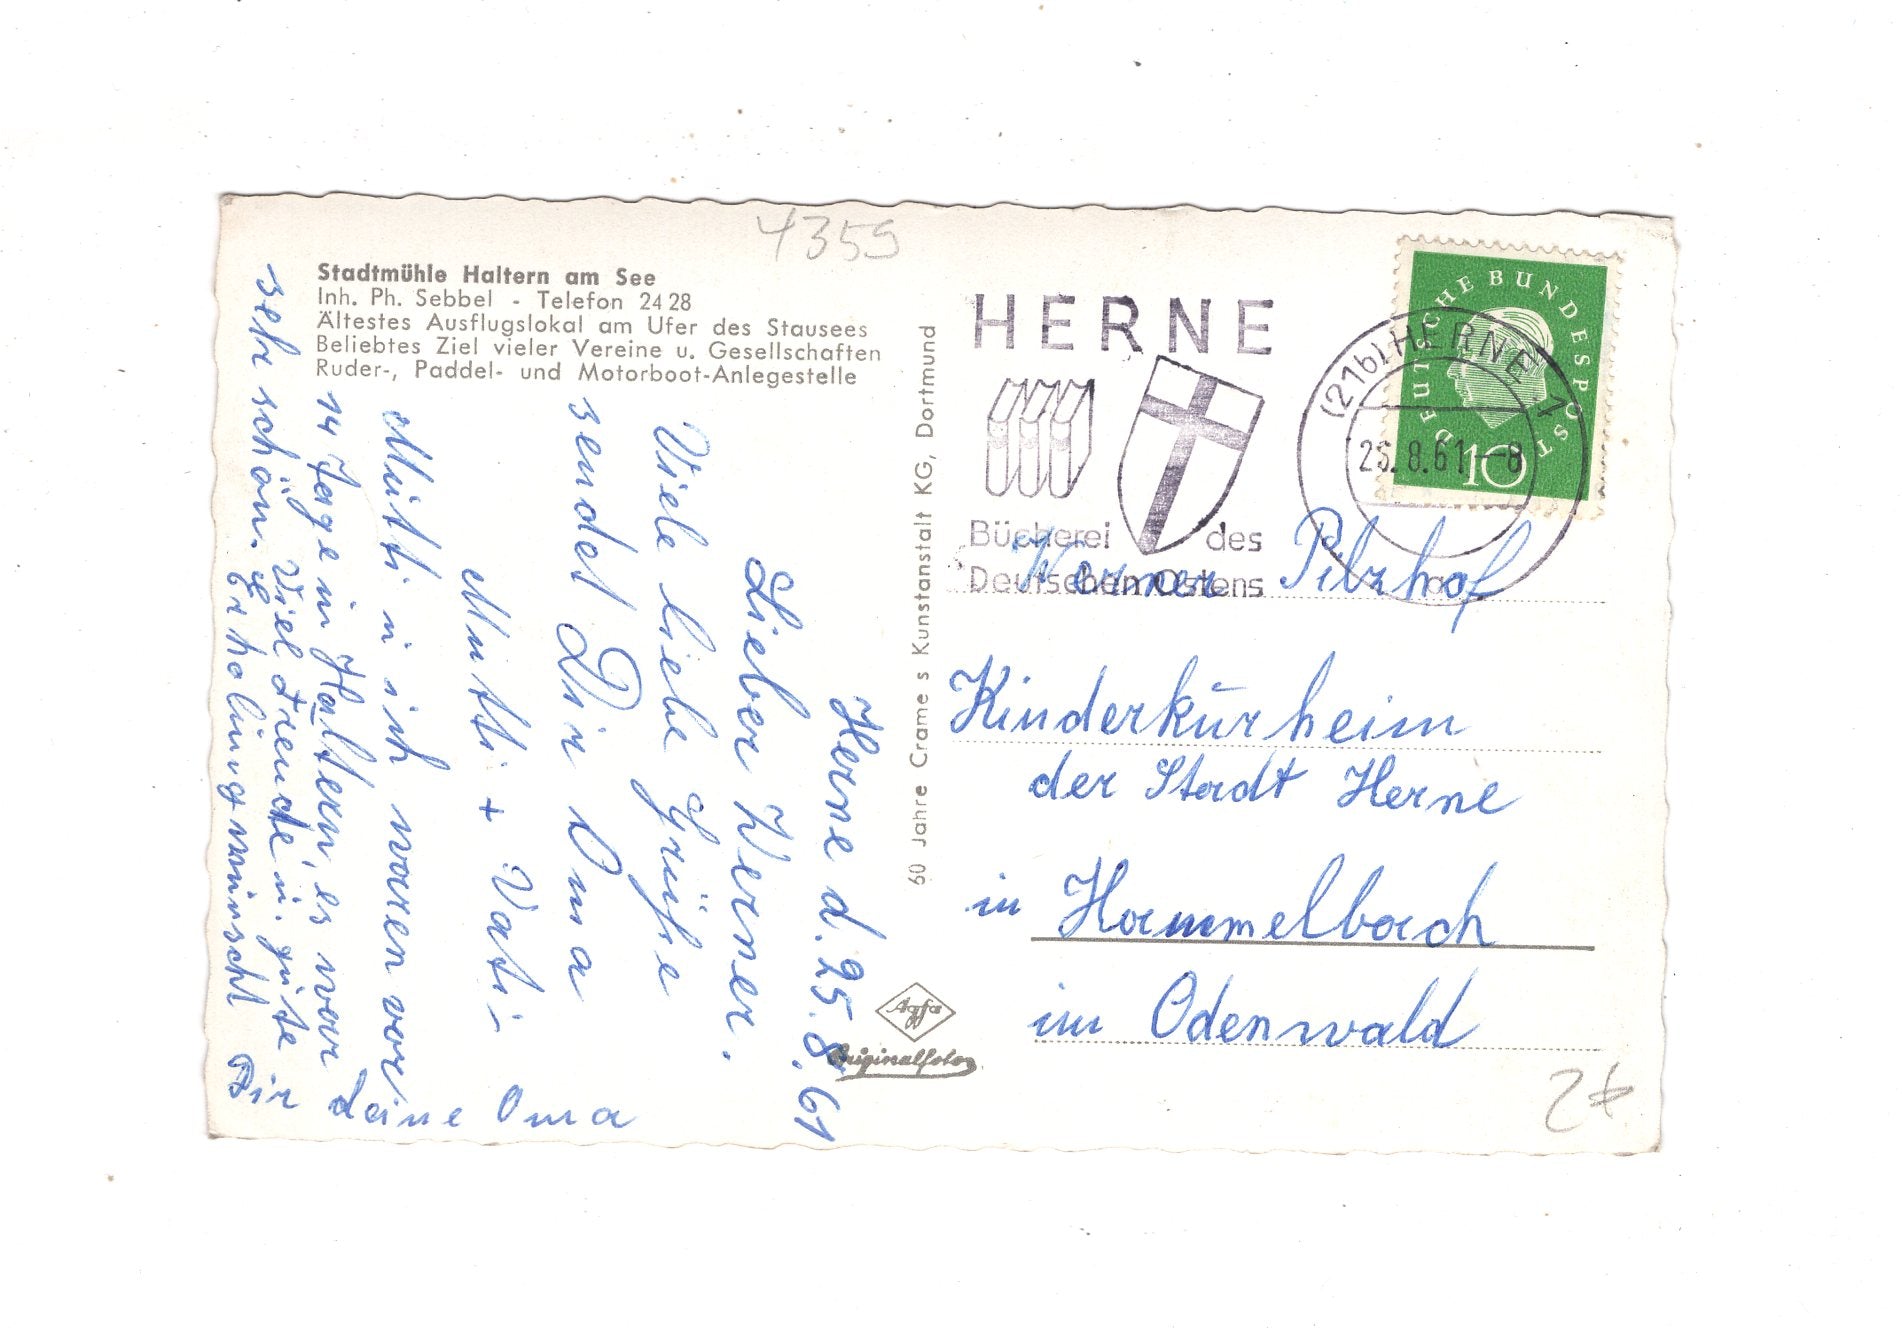 4359
Stadtmühle Haltern am See
Inh. Ph. Sebbel - Telefon 24 28
Ältestes Ausflugslokal am Ufer des Stausees
Beliebtes Ziel vieler Vereine u. Gesellschaften
Ruder-, Paddel- und Motorboot-Anlegestelle
Herne d. 25.8.61
Lieber Werner.
Viele liebe Grüße
sendet Dir Oma
Mutti + Vati.
Mutti u ich waren vor
14 Tage in Haltern, es war
sehr schön. Viel Freude u. gute
Erholung wünscht
Dir deine Oma
60 Jahre Cramers Kunstanstalt KG, Dortmund
Agfa
Originalfoto
HERNE
Bücherei des
Deutschen Ostens
(21b) HERNE 1
26.8.61--8
a
DEUTSCHE BUNDESPOST
10
Werner Pilzhof
Kinderkurheim
der Stadt Herne
in Hammelbach
im Odenwald